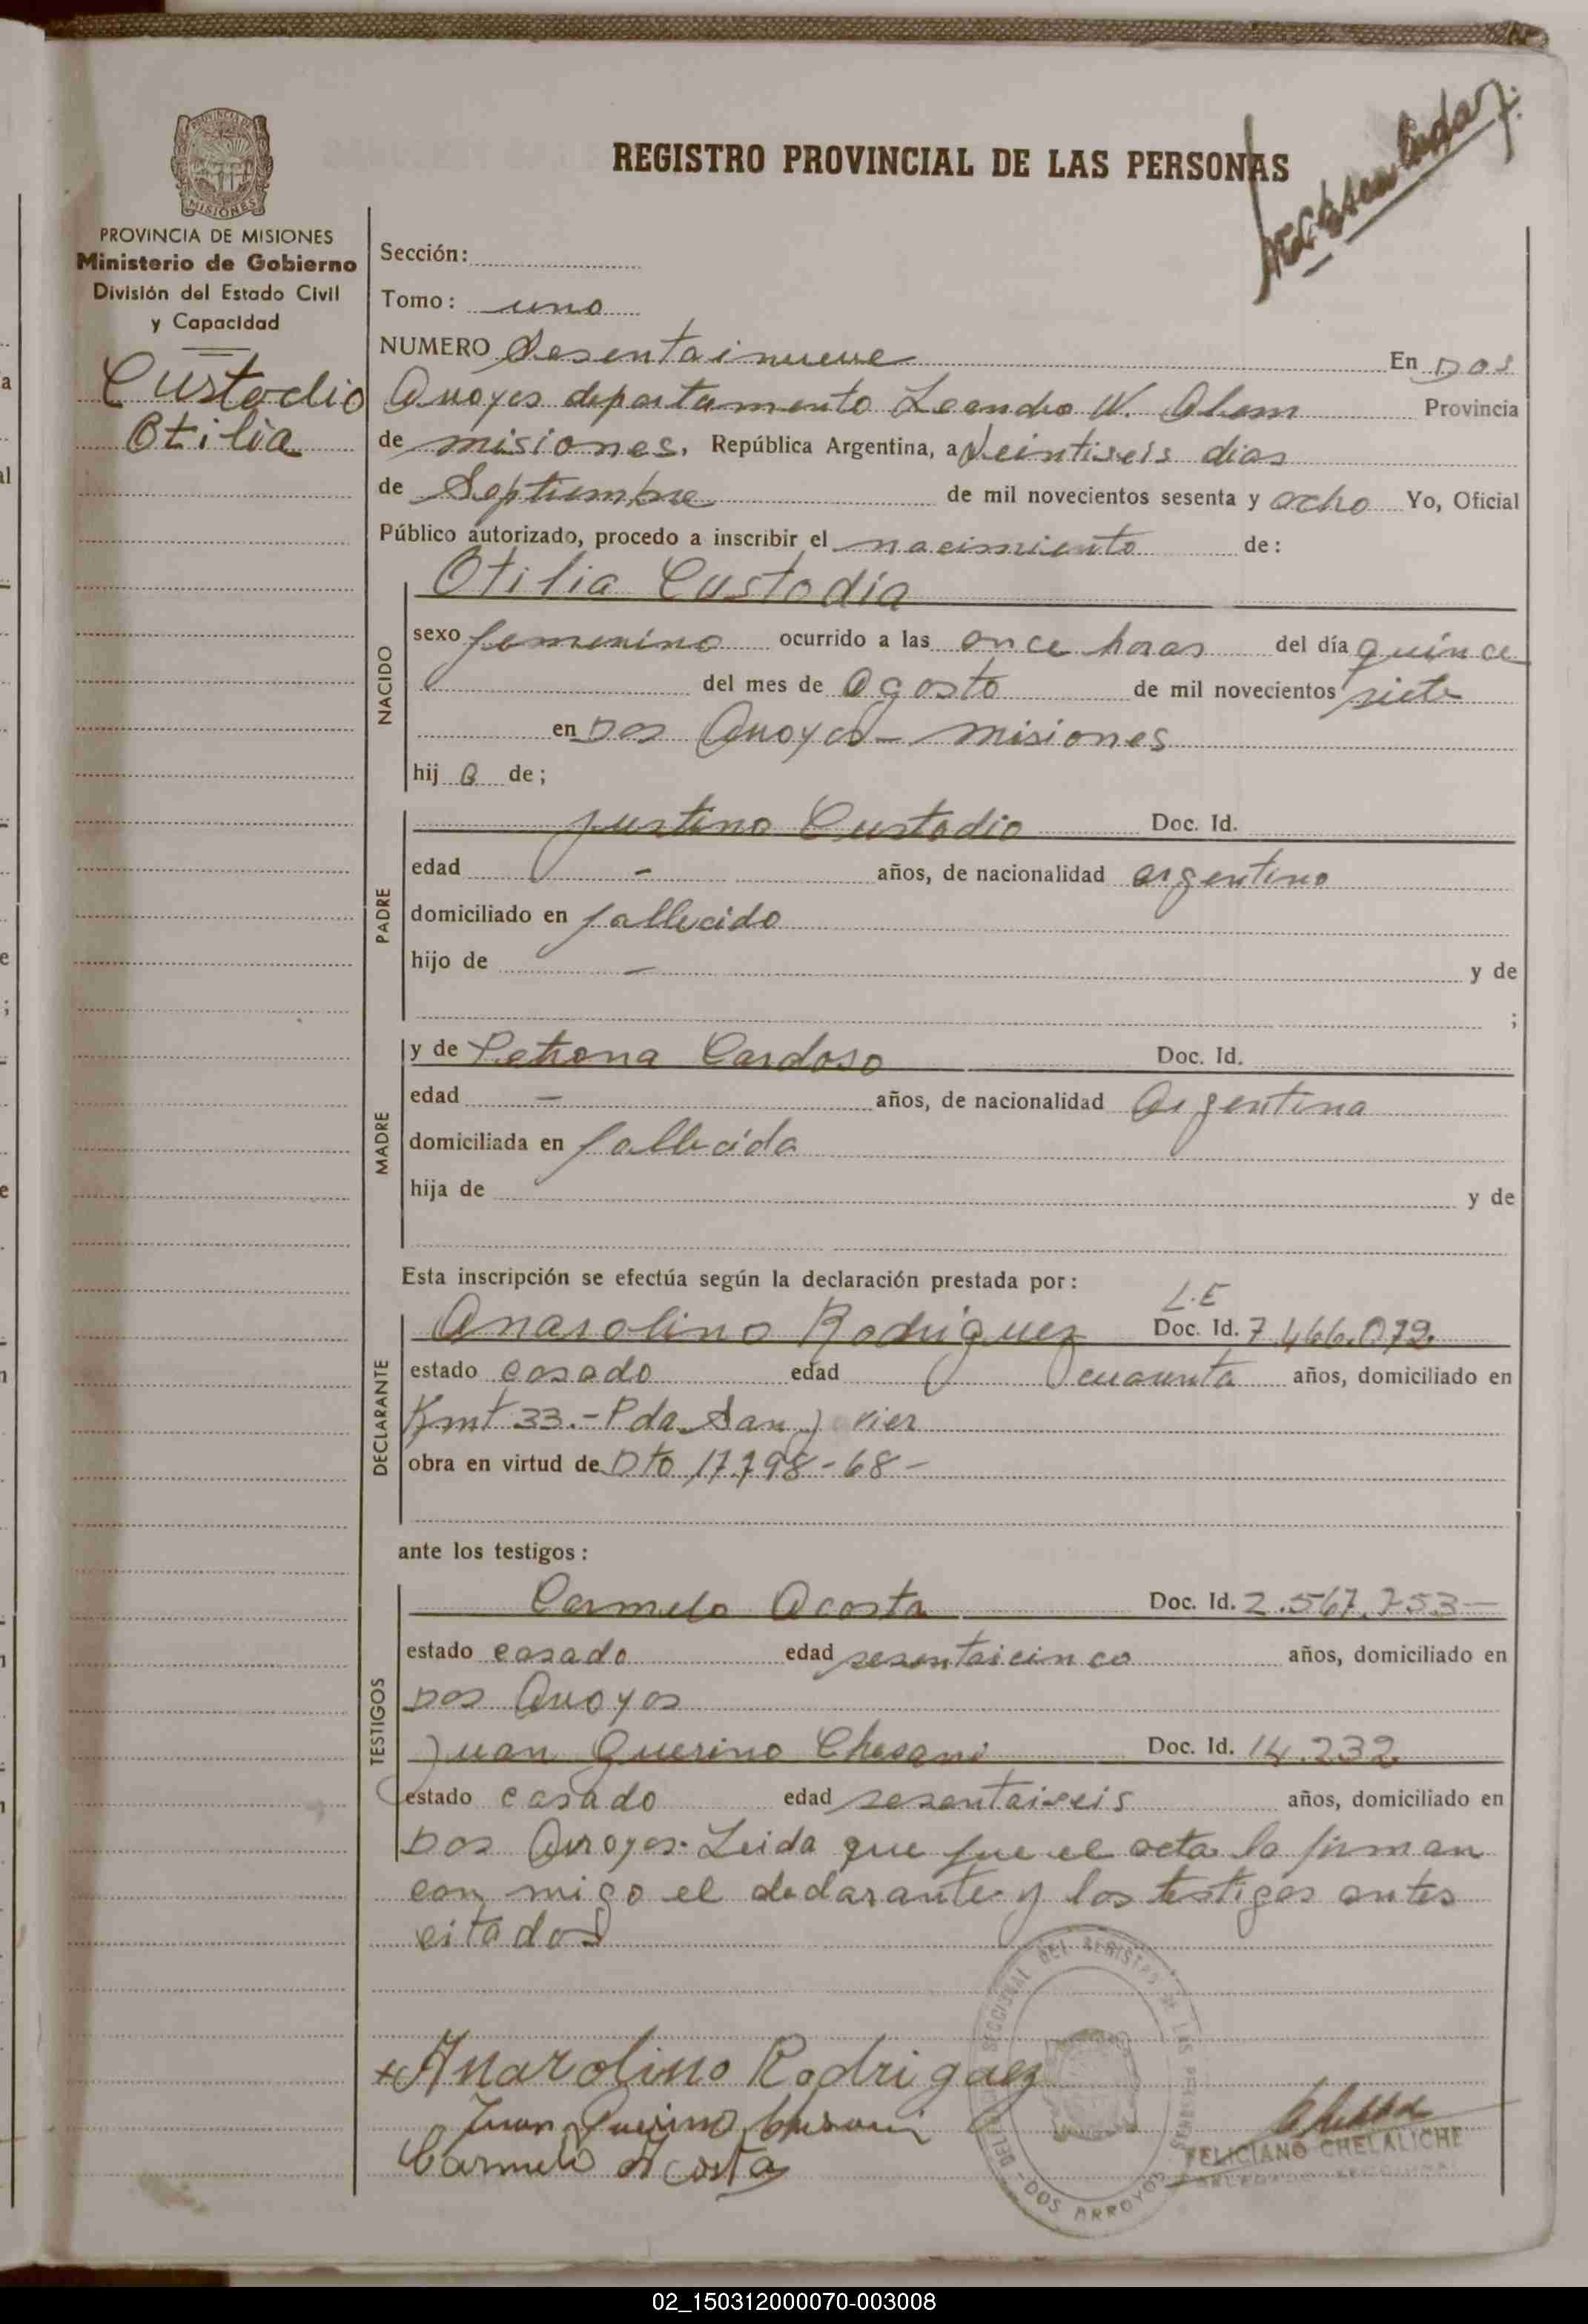 REGISTRO PROVINCIAL DE LAS PERSONAS
PROVINCIA DE
MISIONES
PROVINCIA DE MISIONES
Ministerio de Gobierno
División del Estado Civil
y Capacidad
Custodio
Otilia
Sección:
Tomo: uno
NUMERO Sesentainueve En Dos
Arroyos departamento Leandro N. Alem Provincia
de misiones, República Argentina, a Veintiseis dias
de Septiembre de mil novecientos sesenta y ocho Yo, Oficial
Público autorizado, procedo a inscribir el nacimiento de:
NACIDO
Otilia Custodia
sexo femenino ocurrido a las once horas del día quince
del mes de Agosto de mil novecientos siete
en Dos Arroyos - misiones
hij a de;
PADRE
Justino Custodio Doc. Id.
edad - años, de nacionalidad argentino
domiciliado en fallecido
hijo de - y de
;
MADRE
y de Petrona Cardoso Doc. Id.
edad - años, de nacionalidad Argentina
domiciliada en fallecida
hija de y de
Esta inscripción se efectúa según la declaración prestada por:
DECLARANTE
L.E
Anarolino Rodriguez Doc. Id. 7.466.079.
estado casado edad cuarenta años, domiciliado en
Kmt 33.- Pda San Javier
obra en virtud de Dto 17.798-68-
ante los testigos:
TESTIGOS
Carmelo Acosta Doc. Id. 2.567.753-
estado casado edad sesentaicinco años, domiciliado en
Dos Arroyos
Juan Querino Chesani Doc. Id. 14.232.
estado casado edad sesentaiseis años, domiciliado en
Dos Arroyos. Leida que fue el acta la firman
con migo el declarante y los testigos antes
citados
x Anarolino Rodriguez
Juan Querino Chesani
Carmelo Acosta
DOS ARROYOS
FELICIANO CHELALICHE
02_150312000070-003008